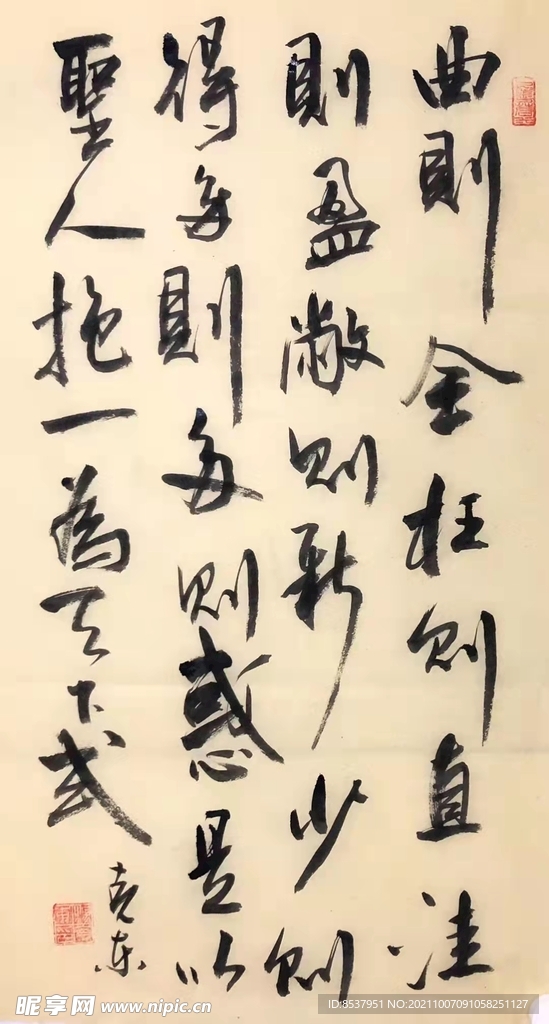 曲則全枉则直洼
則盈敝则新少则
得則多则惑是以
聖人抱一為天下式
克东
昵享网 www.nipic.cn
ID:8537951 NO:20211007091058251127